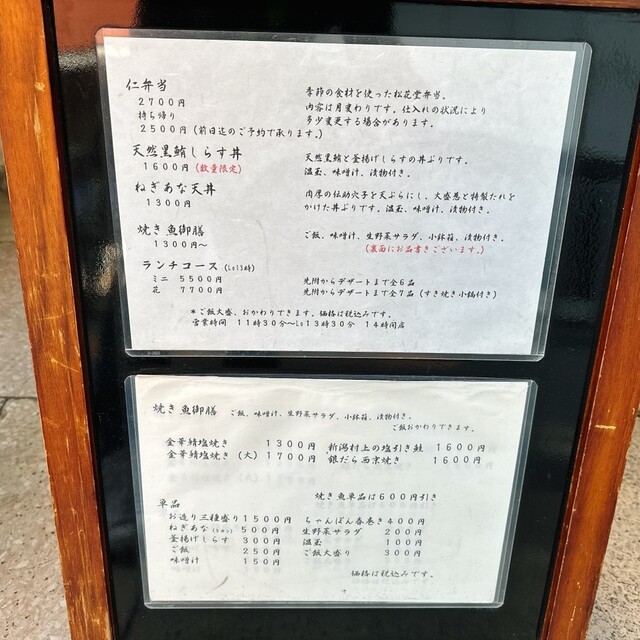 仁弁当
2700円
持ち帰り
2500円 (前日迄のご予約で承ります。)
季節の食材を使った松花堂弁当。
内容は月変わりです。仕入れの状況により
多少変更する場合があります。
天然黒鮪しらす丼
1600円 (数量限定)
天然黒鮪と釜揚げしらすの丼ぶりです。
温玉、味噌汁、漬物付き。
ねぎあな天丼
1300円
肉厚の伝助穴子を天ぷらにし、大盛葱と特製だれを
かけた丼ぶりです。温玉、味噌汁、漬物付き。
焼き魚御膳
1300円〜
ご飯、味噌汁、生野菜サラダ、小鉢箱、漬物付き。
(裏面にお品書きございます。)
ランチコース (Lo13時)
ミニ 5500円 先附からデザートまで全6品
花 7700円 先附からデザートまで全7品 (すき焼き小鍋付き)
*ご飯大盛、おかわりできます。価格は税込みです。
営業時間 11時30分〜Lo13時30分 14時閉店
焼き魚御膳 ご飯、味噌汁、生野菜サラダ、小鉢箱、漬物付き。
ご飯おかわりできます。
金華鯖塩焼き 1300円 新潟村上の塩引き鮭 1600円
金華鯖塩焼き (大) 1700円 銀だら西京焼き 1600円
焼き魚単品は600円引き
単品
お造り三種盛り 1500円 ちゃんぽん春巻き 400円
ねぎあな 500円 生野菜サラダ 200円
釜揚げしらす 300円 温玉 100円
ご飯 250円 ご飯大盛り 300円
味噌汁 150円
価格は税込みです。